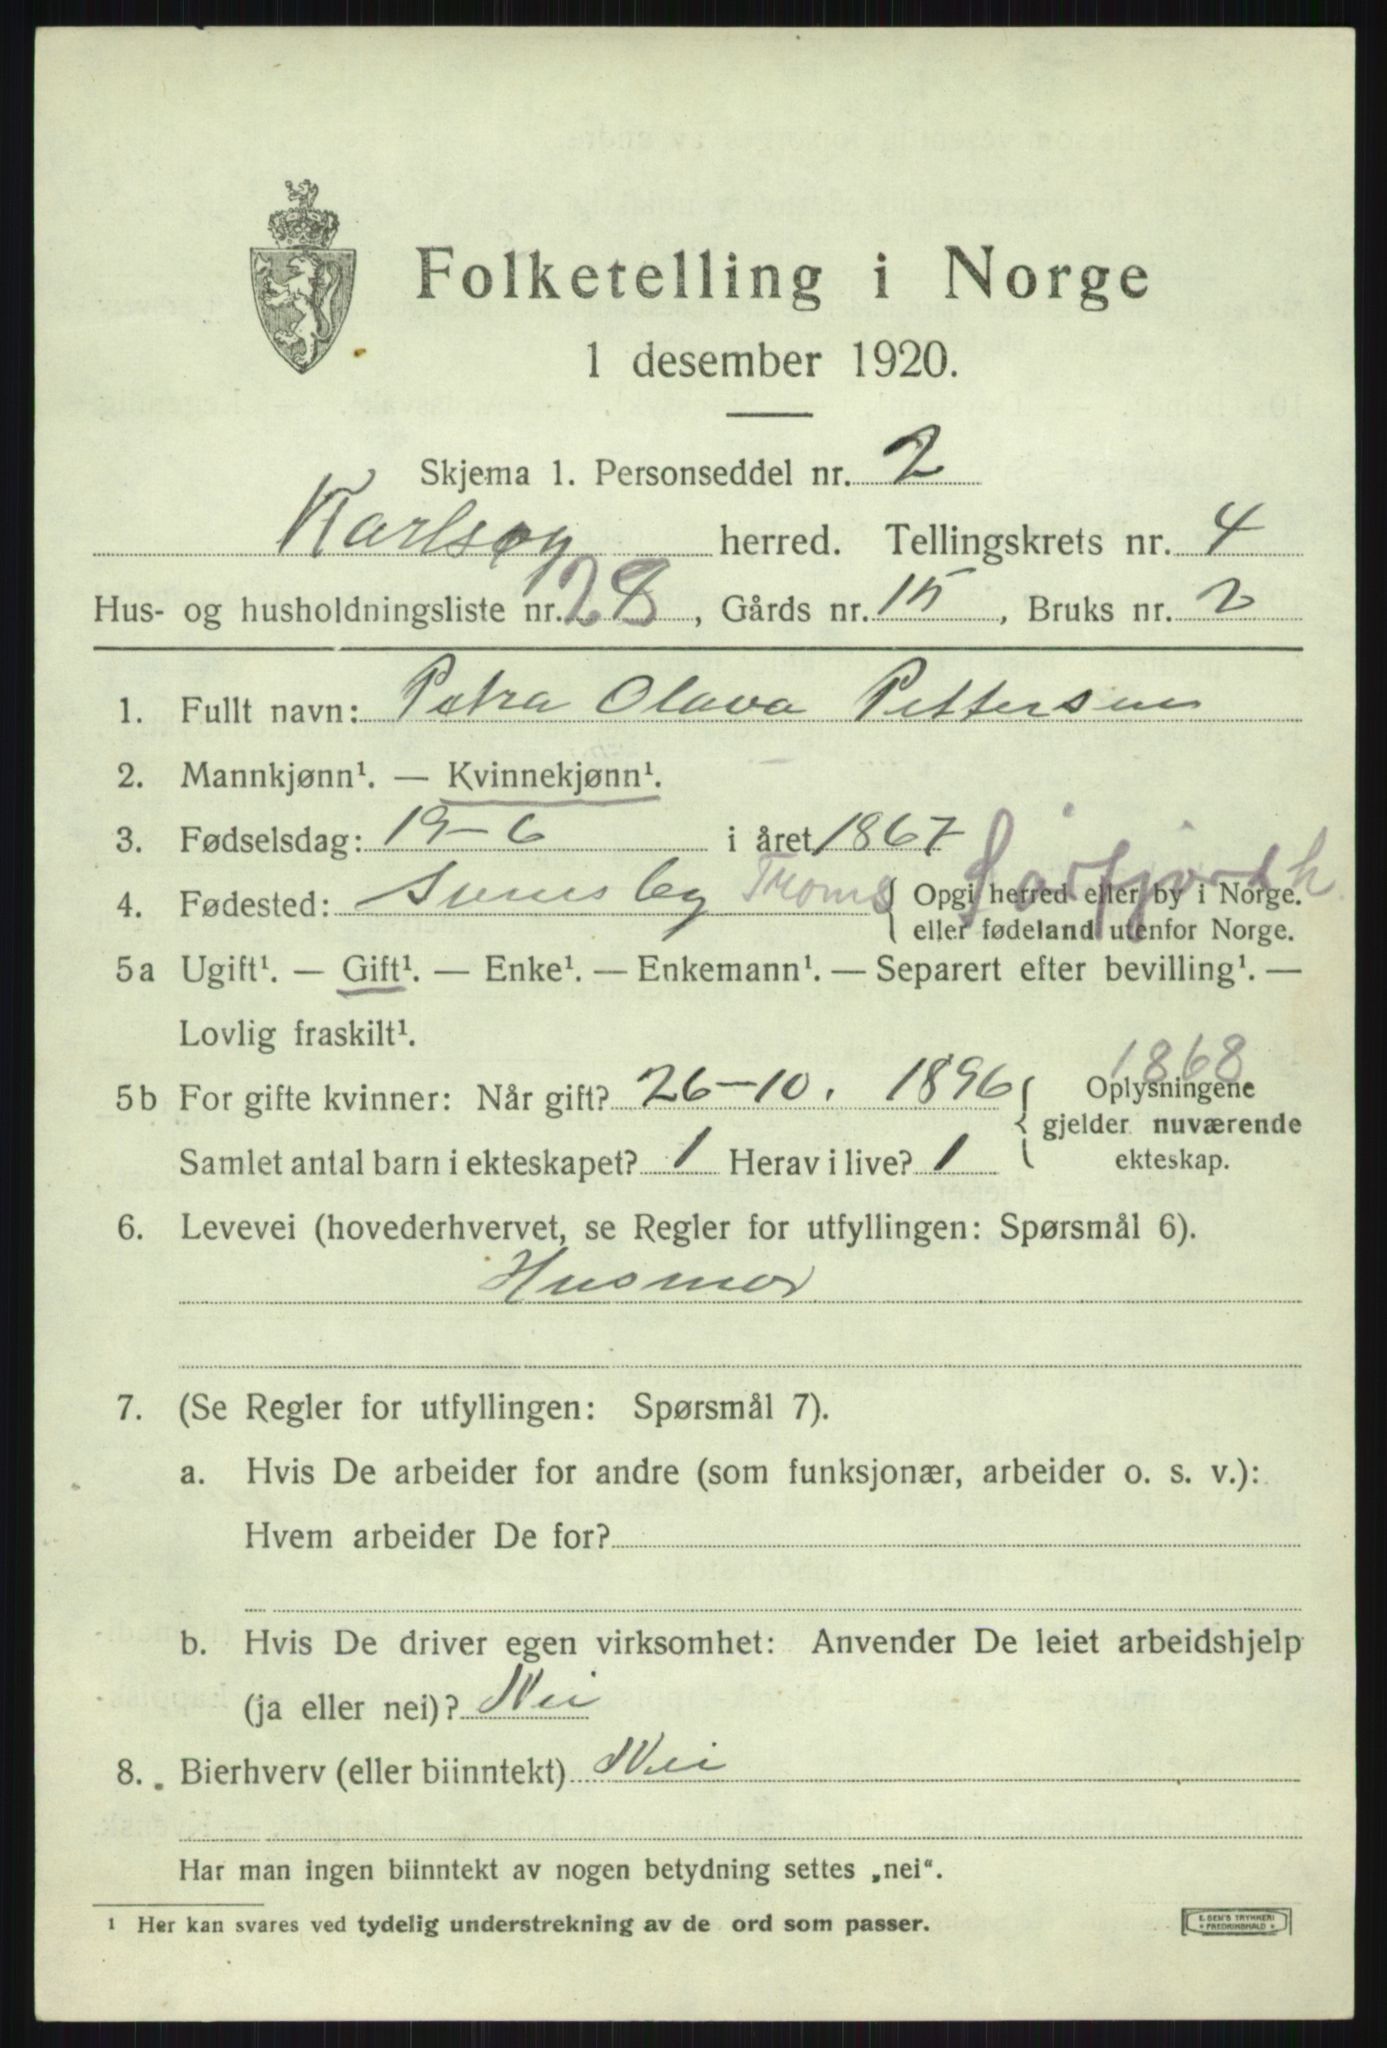 Folketelling i Norge
1 desember 1920.
Skjema 1. Personseddel nr. 2
Karlsøy herred. Tellingskrets nr. 4
Hus- og husholdningsliste nr. 28, Gårds nr. 15, Bruks nr. 2
1. Fullt navn: Petra Olava Pettersen
2. Mannkjønn¹. — Kvinnekjønn¹.
3. Fødselsdag: 19-6 i året 1867
4. Fødested: by Troms { Opgi herred eller by i Norge. eller fødeland utenfor Norge.
Sørfjord h
5a Ugift¹. — Gift¹. — Enke¹. — Enkemann¹. — Separert efter bevilling¹. —
Lovlig fraskilt¹.
1868
5b For gifte kvinner: Når gift? 26-10. 1896 { Oplysningene
gjelder nuværende
Samlet antal barn i ekteskapet? 1 Herav i live? 1 ekteskap.
6. Levevei (hovederhvervet, se Regler for utfyllingen: Spørsmål 6).
Husmor
7. (Se Regler for utfyllingen: Spørsmål 7).
a. Hvis De arbeider for andre (som funksjonær, arbeider o. s. v.):
Hvem arbeider De for?
b. Hvis De driver egen virksomhet: Anvender De leiet arbeidshjelp
(ja eller nei)? Nei
8. Bierhverv (eller biinntekt) Nei
Har man ingen biinntekt av nogen betydning settes „nei“.
¹ Her kan svares ved tydelig understrekning av de ord som passer.
E. SEM'S TRYKKERI
FREDRIKSHALD